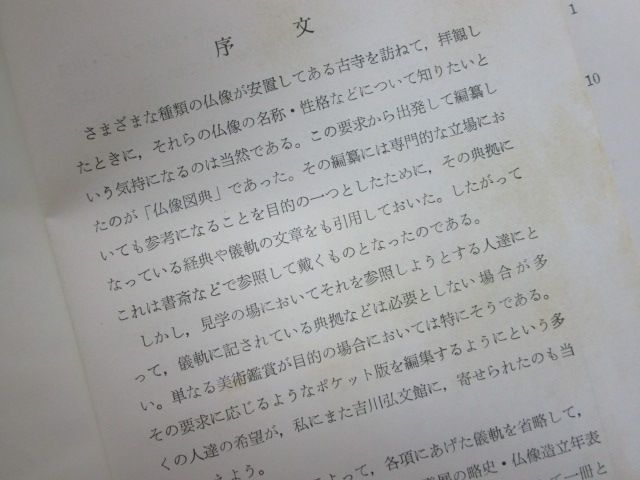 序文
さまざまな種類の仏像が安置してある古寺を訪ねて，拝観し
たときに，それらの仏像の名称・性格などについて知りたいと
いう気持になるのは当然である。この要求から出発して編纂し
たのが「仏像図典」であった。その編纂には専門的な立場にお
いても参考になることを目的の一つとしたために，その典拠に
なっている経典や儀軌の文章をも引用しておいた。したがって
これは書斎などで参照して戴くものとなったのである。
しかし，見学の場においてそれを参照しようとする人達にと
って，儀軌に記されている典拠などは必要としない場合が多
い。単なる美術鑑賞が目的の場合においては特にそうである。
その要求に応じるようなポケット版を編集するようにという多
くの人達の希望が，私にまた吉川弘文館に，寄せられたのも当
えよう。
よって，各項にあげた儀軌を省略して，
の略史・仏像造立年表
て一冊と
1
10